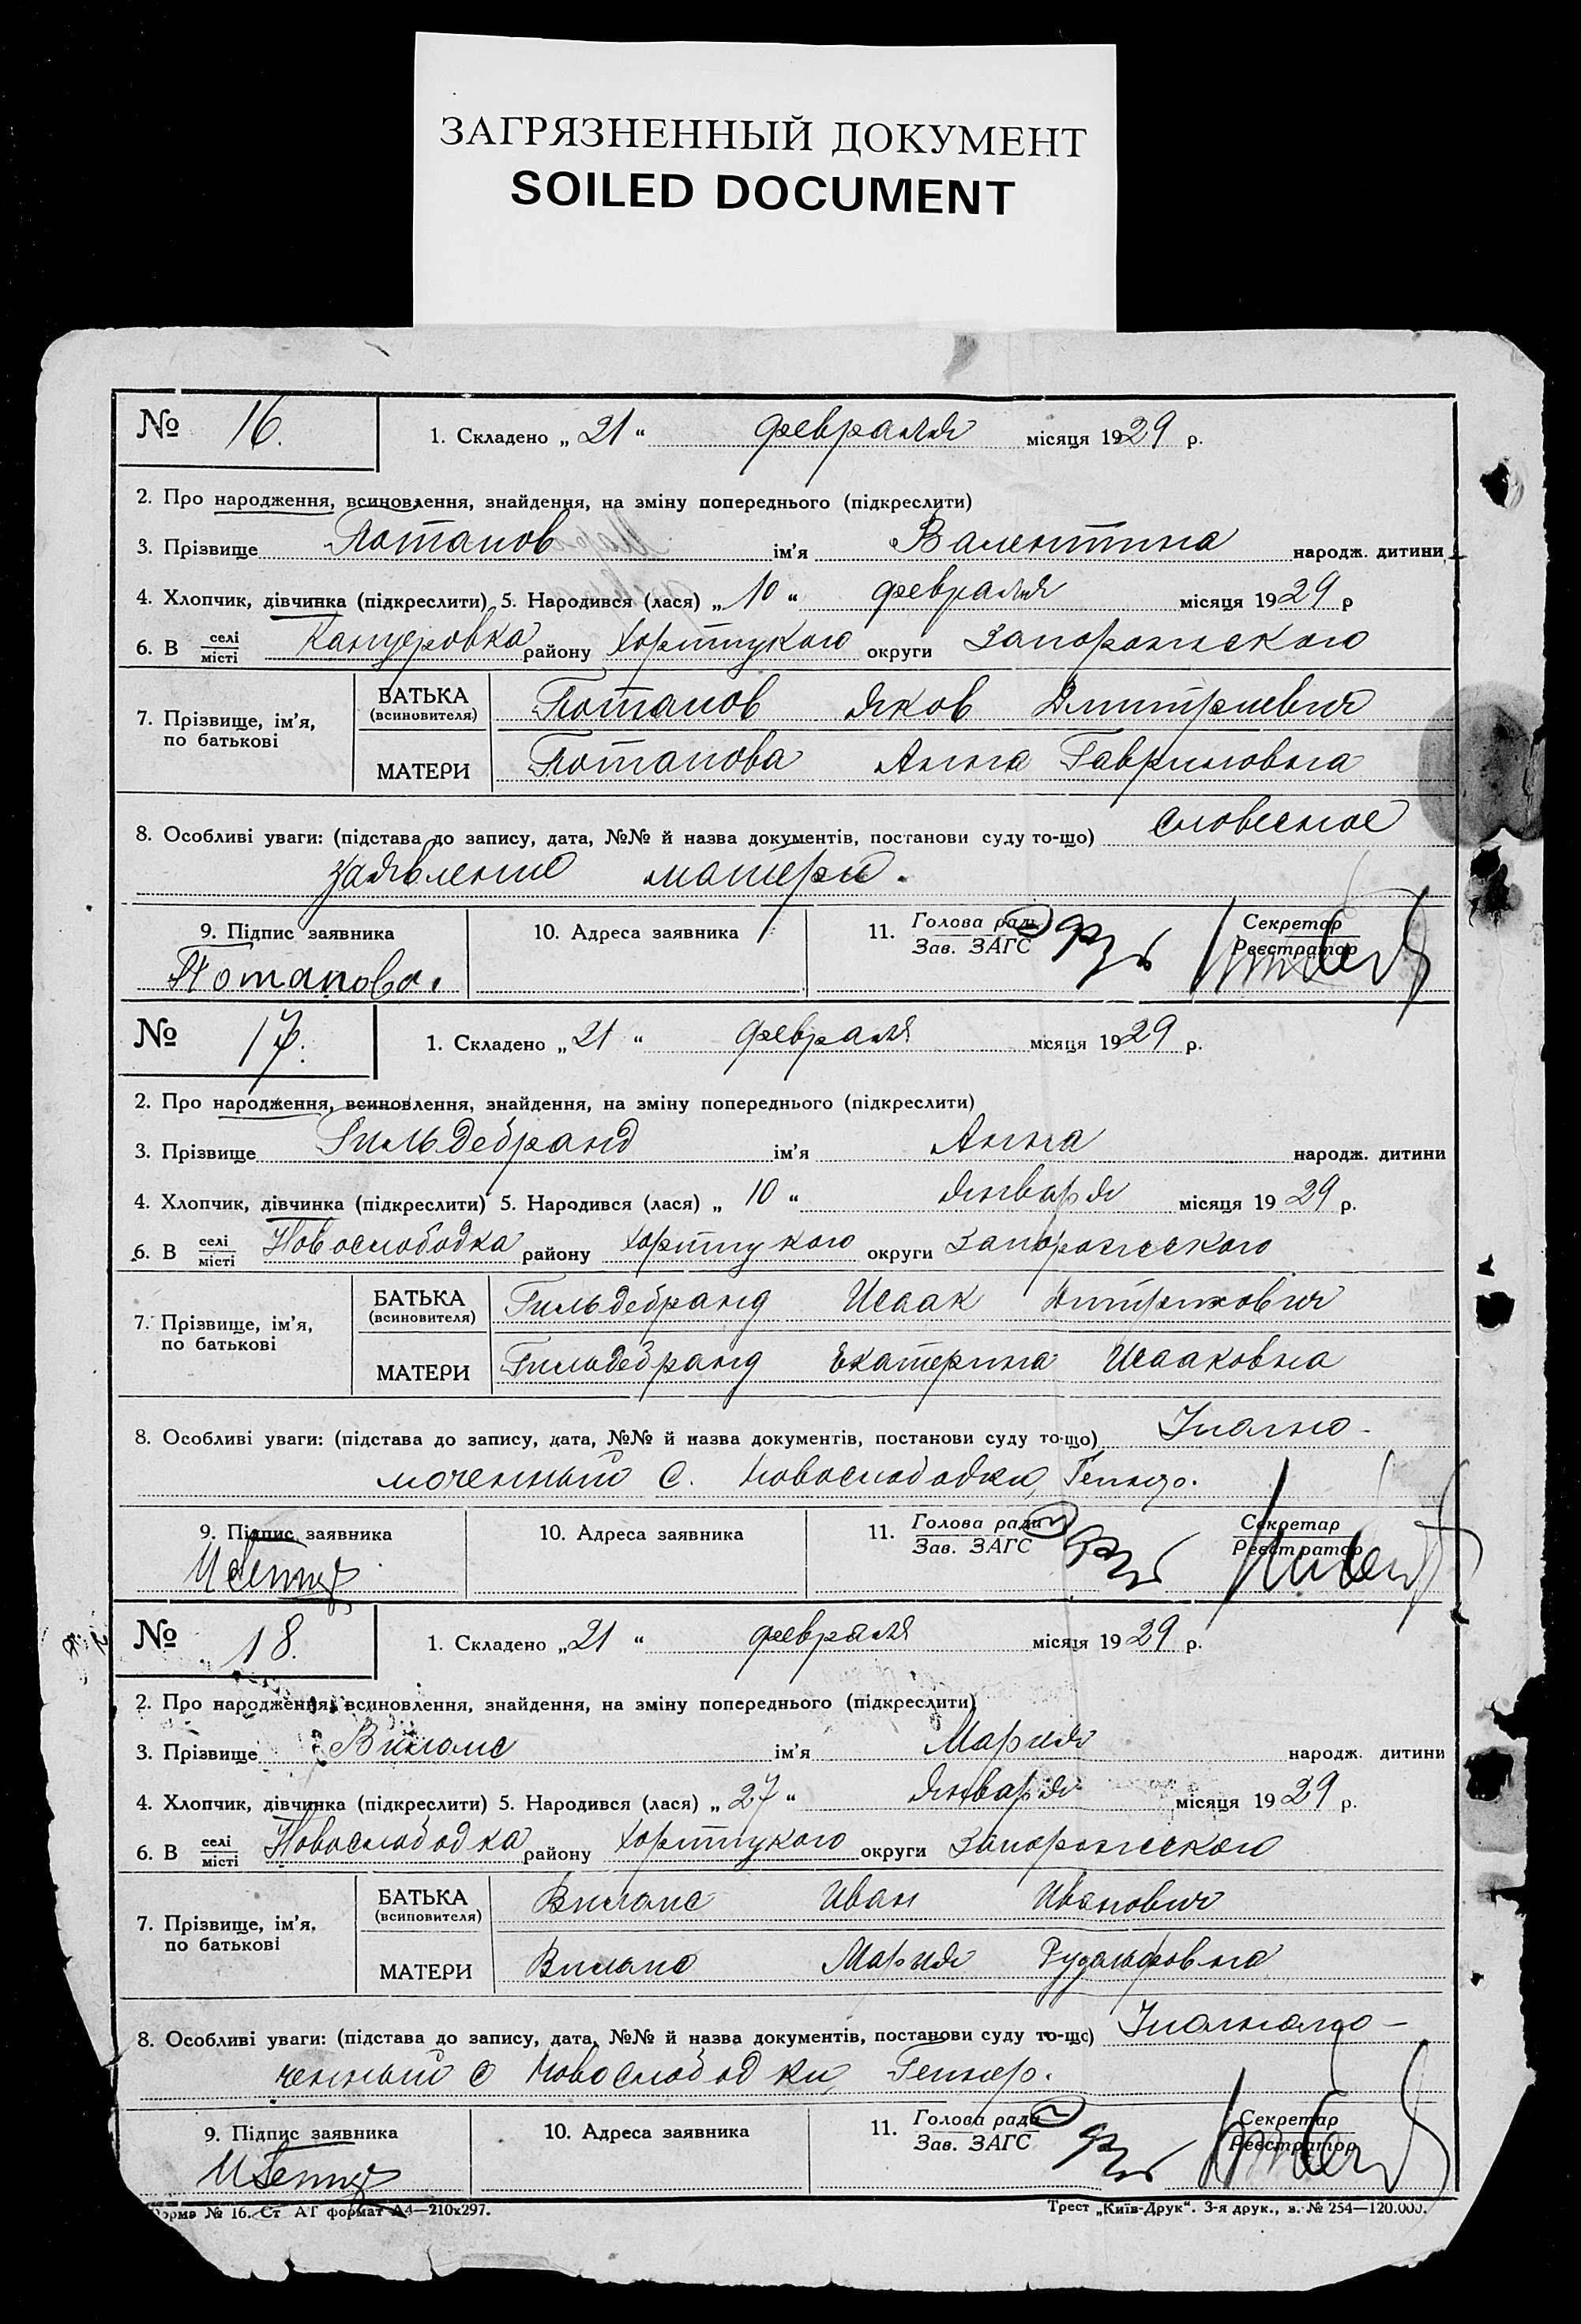 ЗАГРЯЗНЕННЫЙ ДОКУМЕНТ
SOILED DOCUMENT
№ 16. 1. Складено „ 21 “ февраля місяця 1929 р.
2. Про народження, всиновлення, знайдення, на зміну попереднього (підкреслити)
3. Прізвище Потапов ім’я Валентина народж. дитини
4. Хлопчик, дівчинка (підкреслити) 5. Народився (лася) „ 10 “ февраля місяця 1929 р
6. В селі місті Канцеровка району Хортицкого округи Запорожского
7. Прізвище, ім’я, по батькові
БАТЬКА (всиновителя) Потапов Яков Дмитриевич
МАТЕРИ Потапова Анна Гавриловна
8. Особливі уваги: (підстава до запису, дата, №№ й назва документів, постанови суду то-що) словесное
заявление матери.
9. Підпис заявника 10. Адреса заявника 11. Голова ради Зав. ЗАГС Секретар Реєстратор
Потапова.
№ 17. 1. Складено „ 21 “ февраля місяця 1929 р.
2. Про народження, всиновлення, знайдення, на зміну попереднього (підкреслити)
3. Прізвище Гильдебранд ім’я Анна народж. дитини
4. Хлопчик, дівчинка (підкреслити) 5. Народився (лася) „ 10 “ января місяця 1929 р.
6. В селі місті Новослободка району Хортицкого округи Запорожского
7. Прізвище, ім’я, по батькові
БАТЬКА (всиновителя) Гильдебранд Исаак Дитрихович
МАТЕРИ Гильдебранд Екатерина Исааковна
8. Особливі уваги: (підстава до запису, дата, №№ й назва документів, постанови суду то-що) Уполно-
моченный с. Новослободки,
9. Підпис заявника 10. Адреса заявника 11. Голова ради Зав. ЗАГС Секретар Реєстратор
№ 18. 1. Складено „ 21 “ февраля місяця 1929 р.
2. Про народження, всиновлення, знайдення, на зміну попереднього (підкреслити)
3. Прізвище Вилане ім’я Мария народж. дитини
4. Хлопчик, дівчинка (підкреслити) 5. Народився (лася) „ 27 “ января місяця 1929 р.
6. В селі місті Новослободка району Хортицкого округи Запорожского
7. Прізвище, ім’я, по батькові
БАТЬКА (всиновителя) Иван Иванович
МАТЕРИ Мария Рудольфовна
8. Особливі уваги: (підстава до запису, дата, №№ й назва документів, постанови суду то-що) Уполномо-
ченный с Новослободки,
9. Підпис заявника 10. Адреса заявника 11. Голова ради Зав. ЗАГС Секретар Реєстратор
Форма № 16. Ст АТ формат А4—210х297. Трест „Київ-Друк“. 3-я друк., в. № 254—120.000.